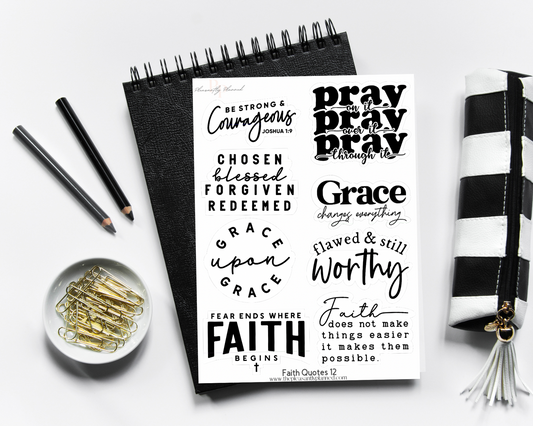 BE STRONG &
Courageous
JOSHUA 1:9
pray
on it
pray
over it
pray
through it
CHOSEN
blessed
FORGIVEN
REDEEMED
Grace
changes everything
GRACE
upon
GRACE
flawed & still
worthy
FEAR ENDS WHERE
FAITH
BEGINS
Faith
does not make
things easier
it makes them
possible.
Faith Quotes 12